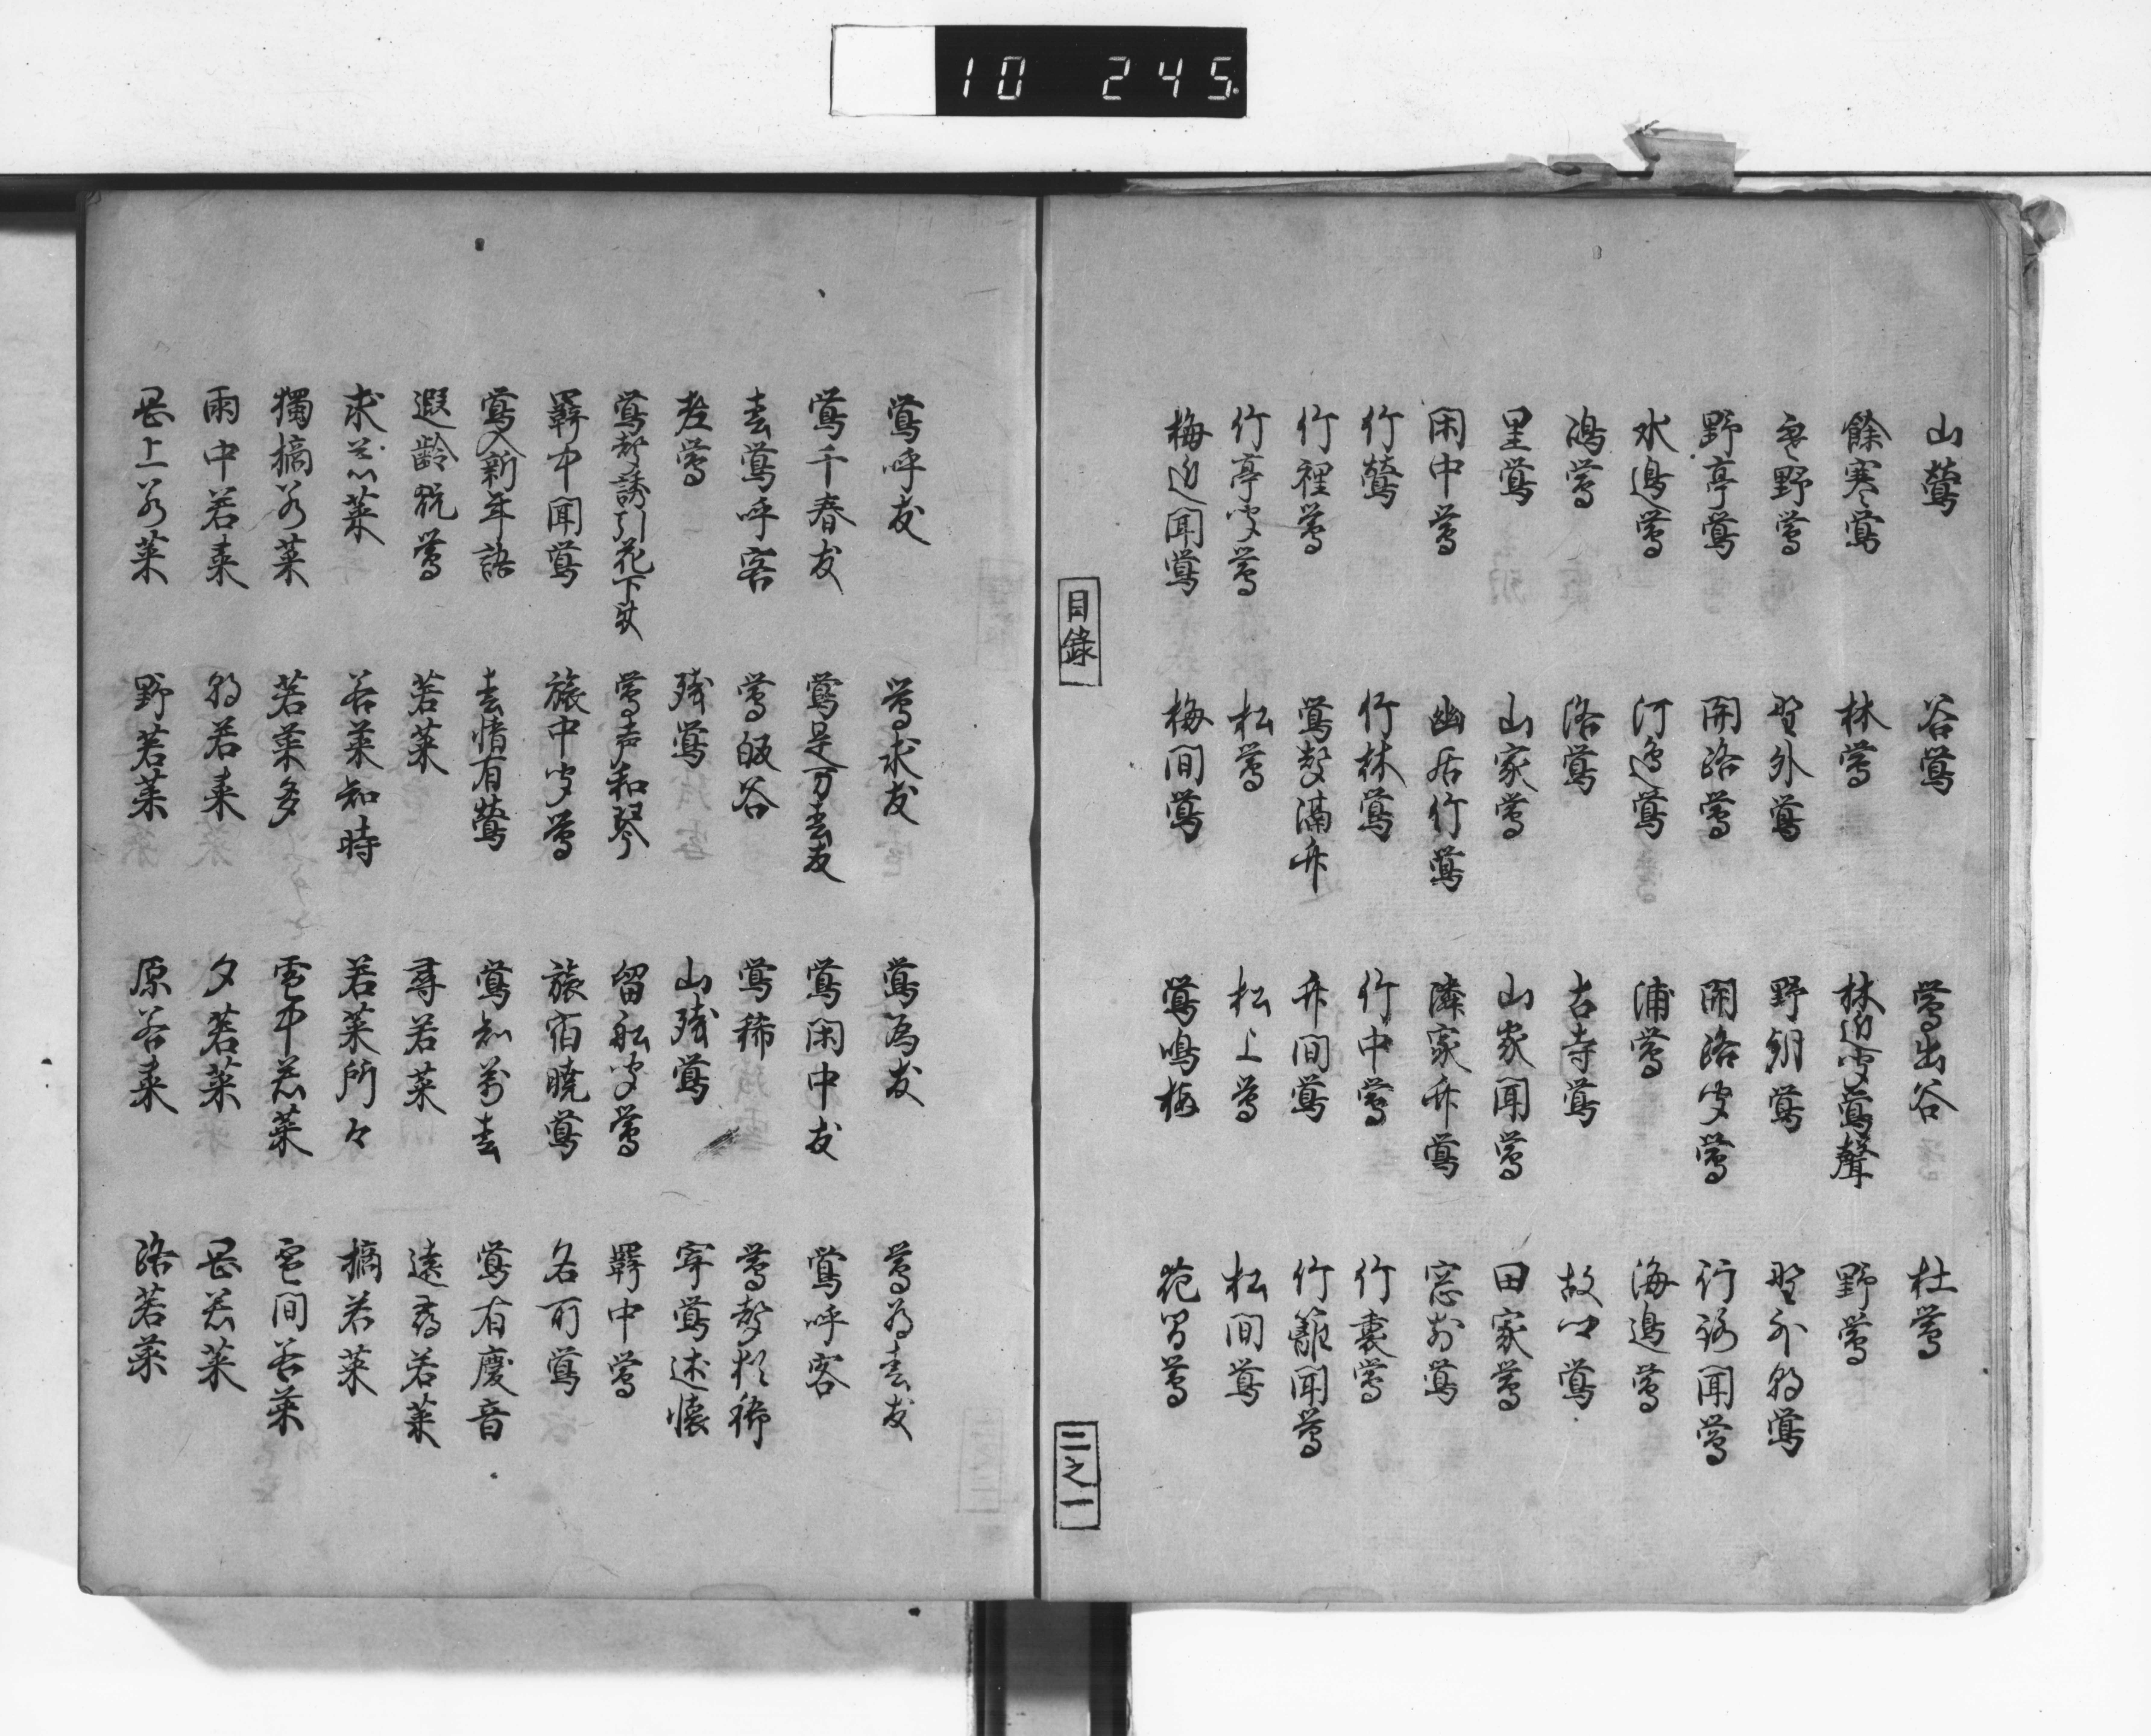 10 245
山鶯 谷鶯 鶯出谷 杜鶯
餘寒鶯 林鶯 林迫聞鶯聲 野鶯
雪野鶯 野外鶯 野朝鶯 野外朝鶯
野亭鶯 関路鶯 関路聞鶯 行路聞鶯
水邊鶯 河邊鶯 浦鶯 海邊鶯
鴻鶯 洛鶯 古寺鶯 故郷鶯
里鶯 山家鶯 山家聞鶯 田家鶯
閑中鶯 幽居竹鶯 隣家竹鶯 窓前鶯
竹鶯 竹林鶯 竹中鶯 竹裏鶯
竹裡鶯 鶯聲満竹 竹間鶯 竹籬聞鶯
竹亭聞鶯 松鶯 松上鶯 松間鶯
梅邊聞鶯 梅間鶯 鶯鳴梅 花留鶯
目録
三之一
鶯呼友 鶯求友 鶯為友 鶯為春友
鶯千春友 鶯是万春友 鶯閑中友 鶯呼客
春鶯呼客 鶯皈谷 鶯稀 鶯聲秋稀
老鶯 残鶯 山残鶯 寄鶯述懐
鶯聲誘引花下 鶯声和琴 留船聞鶯 羇中鶯
羇中聞鶯 旅中聞鶯 旅宿暁鶯 名所鶯
鶯入新年語 春情有鶯 鶯知万春 鶯有慶音
遐齢銃鶯 若菜 尋若菜 遠尋若菜
求若菜 若菜知時 若菜所々 摘若菜
獨摘若菜 若菜多 雪中若菜 雪間若菜
雨中若菜 朝若菜 夕若菜 岡若菜
岡上若菜 野若菜 原若菜 路若菜